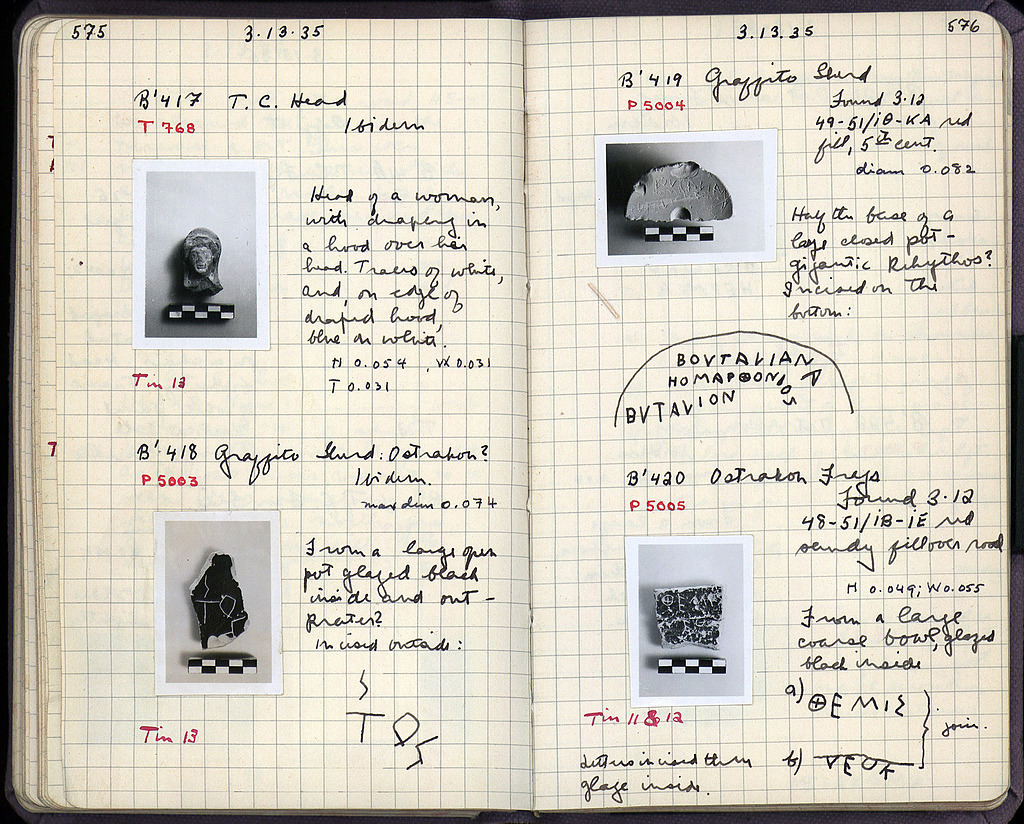 575
3·13·35
B'417 T. C. Head
T 768
Ibidem
Head of a woman,
with drapery in
a hood over her
head. Traces of white,
and, on edge of
draped hood,
blue on white.
H 0.054 , W 0.031
T 0.031
Tin 13
B'418 Graffito Sherd: Ostrakon?
P 5003
Ibidem.
max dim 0.074
From a large open
pot glazed black
inside and out –
Krater?
Incised outside:
Tin 13
3.13.35
576
B'419 Graffito Sherd
P 5004
Found 3·12
49-51/ΙΘ-ΚΑ red
fill, 5th cent.
diam 0.082
Half the base of a
large closed pot –
gigantic
Incised on the
bottom:
BOVTALIAN
HOMAPΘON
BVTAVION
B'420 Ostrakon Frags
P 5005
Found 3·12
48-51/ΙΒ-ΙΕ red
sandy fill over road
H 0.049; W 0.055
From a large
coarse bowl, glazed
black inside
a) ⊕EMIΣ
join.
b)
Tin 11 & 12
Letters incised thru
glaze inside.